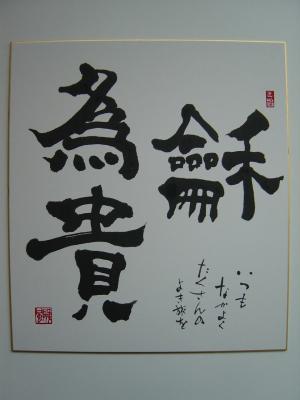 龢
為貴
いつも
なかよく
たくさんの
よき を